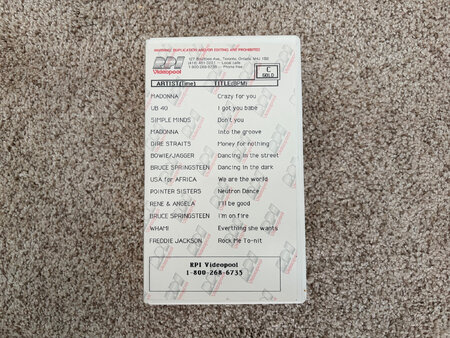 WARNING: DUPLICATION AND/OR EDITING ARE PROHIBITED
RPI
Videopool
Toronto, Ontario
Local calls
1-800-268-6735 - Phone free
C
GOLD
ARTIST(Time) TITLE(BPM)
MADONNA Crazy for you
UB 40 I got you babe
SIMPLE MINDS Don't you
MADONNA Into the groove
DIRE STRAITS Money for nothing
BOWIE/JAGGER Dancing in the street
BRUCE SPRINGSTEEN Dancing in the dark
USA for AFRICA We are the world
POINTER SISTERS Neutron Dance
RENE & ANGELA I'll be good
BRUCE SPRINGSTEEN I'm on fire
WHAM! Everthing she wants
FREDDIE JACKSON Rock Me To-nit
RPI Videopool
1-800-268-6735